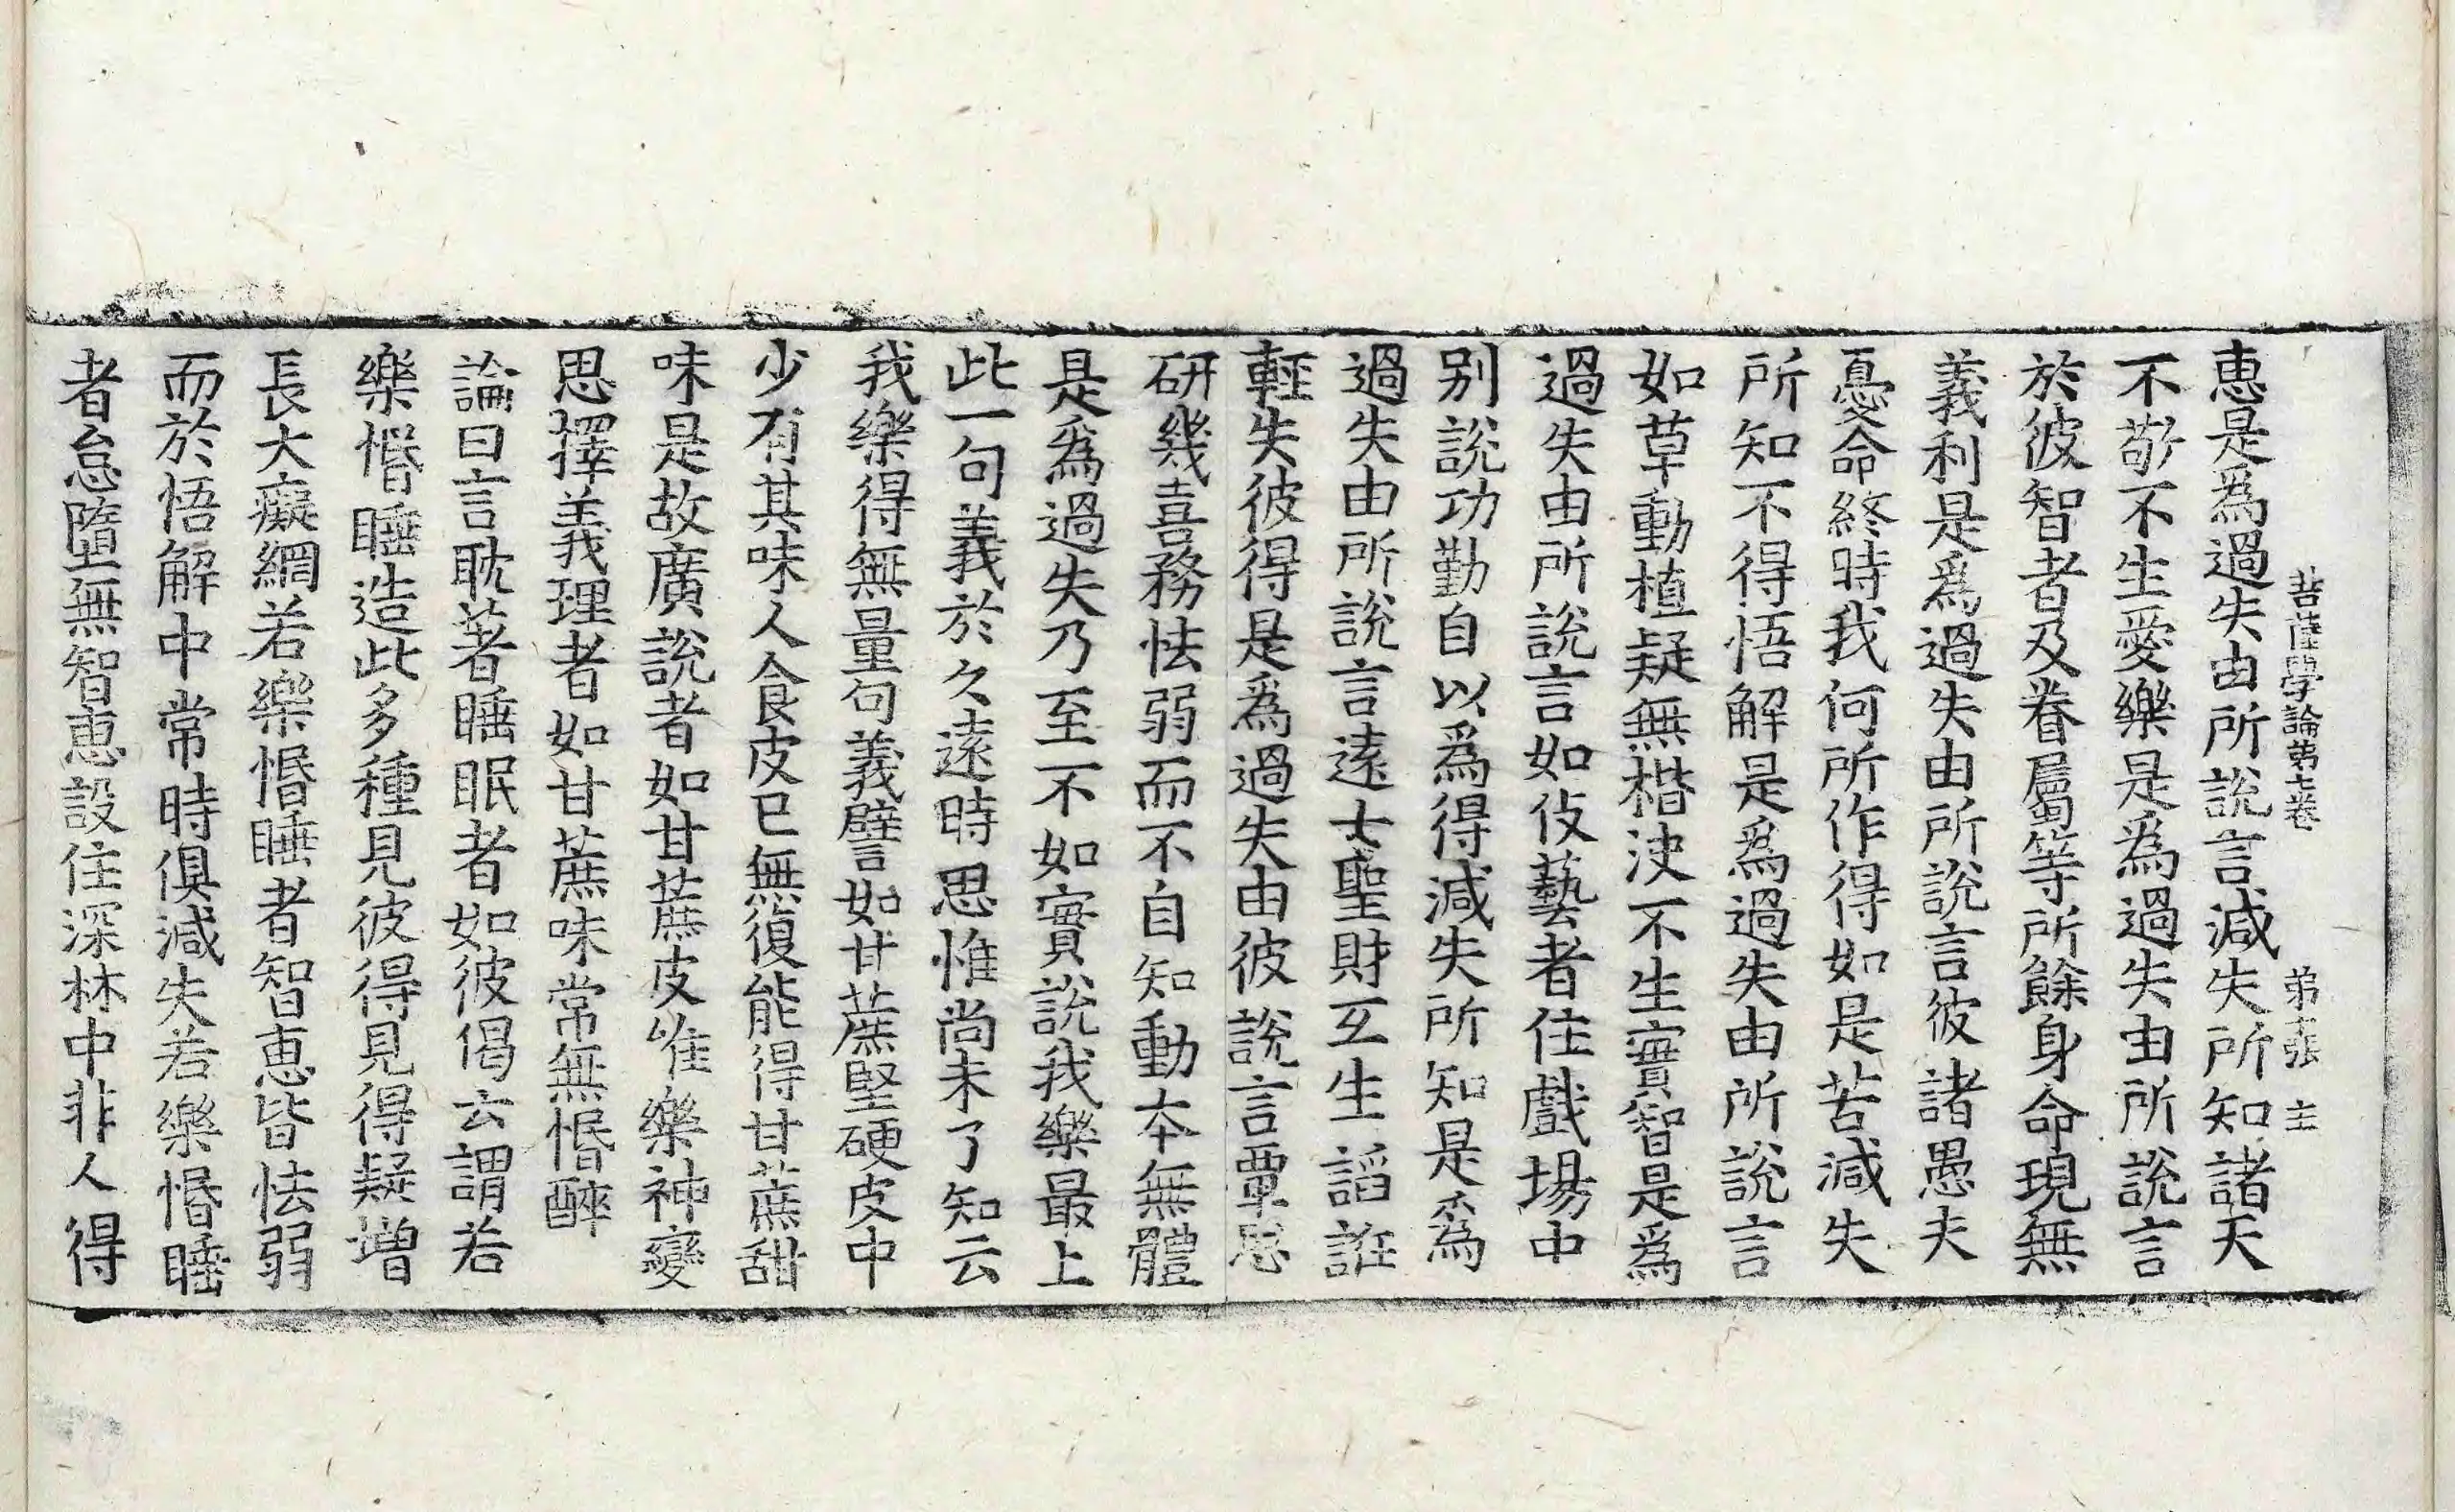 菩薩學論第七卷 第七張 主
惠是爲過失由所說言減失所知諸天
不敬不生愛樂是爲過失由所說言
於彼智者及眷屬等所餘身命現無
義利是爲過失由所說言彼諸愚夫
憂命終時我何所作得如是苦減失
所知不得悟解是爲過失由所說言
如草動植疑無楷決不生實智是爲
過失由所說言如伎藝者住戲場中
別說功勤自以爲得減失所知是爲
過失由所說言遠士聖財互生諂誑
輕失彼得是爲過失由彼說言覃思
研幾喜務怯弱而不自知動本無體
是爲過失乃至不如實說我樂最上
此一句義於久遠時思惟尚未了知云
我樂得無量句義譬如甘蔗堅硬皮中
少有其味人食皮已無復能得甘蔗甜
味是故廣說者如甘蔗皮唯樂神變
思擇義理者如甘蔗味常無惛醉
論曰言耽著睡眠者如彼偈云謂若
樂惛睡造此多種見彼得見得疑增
長大癡網若樂惛睡者智惠皆怯弱
而於悟解中常時俱減失若樂惛睡
者怠墮無智惠設住深林中非人得